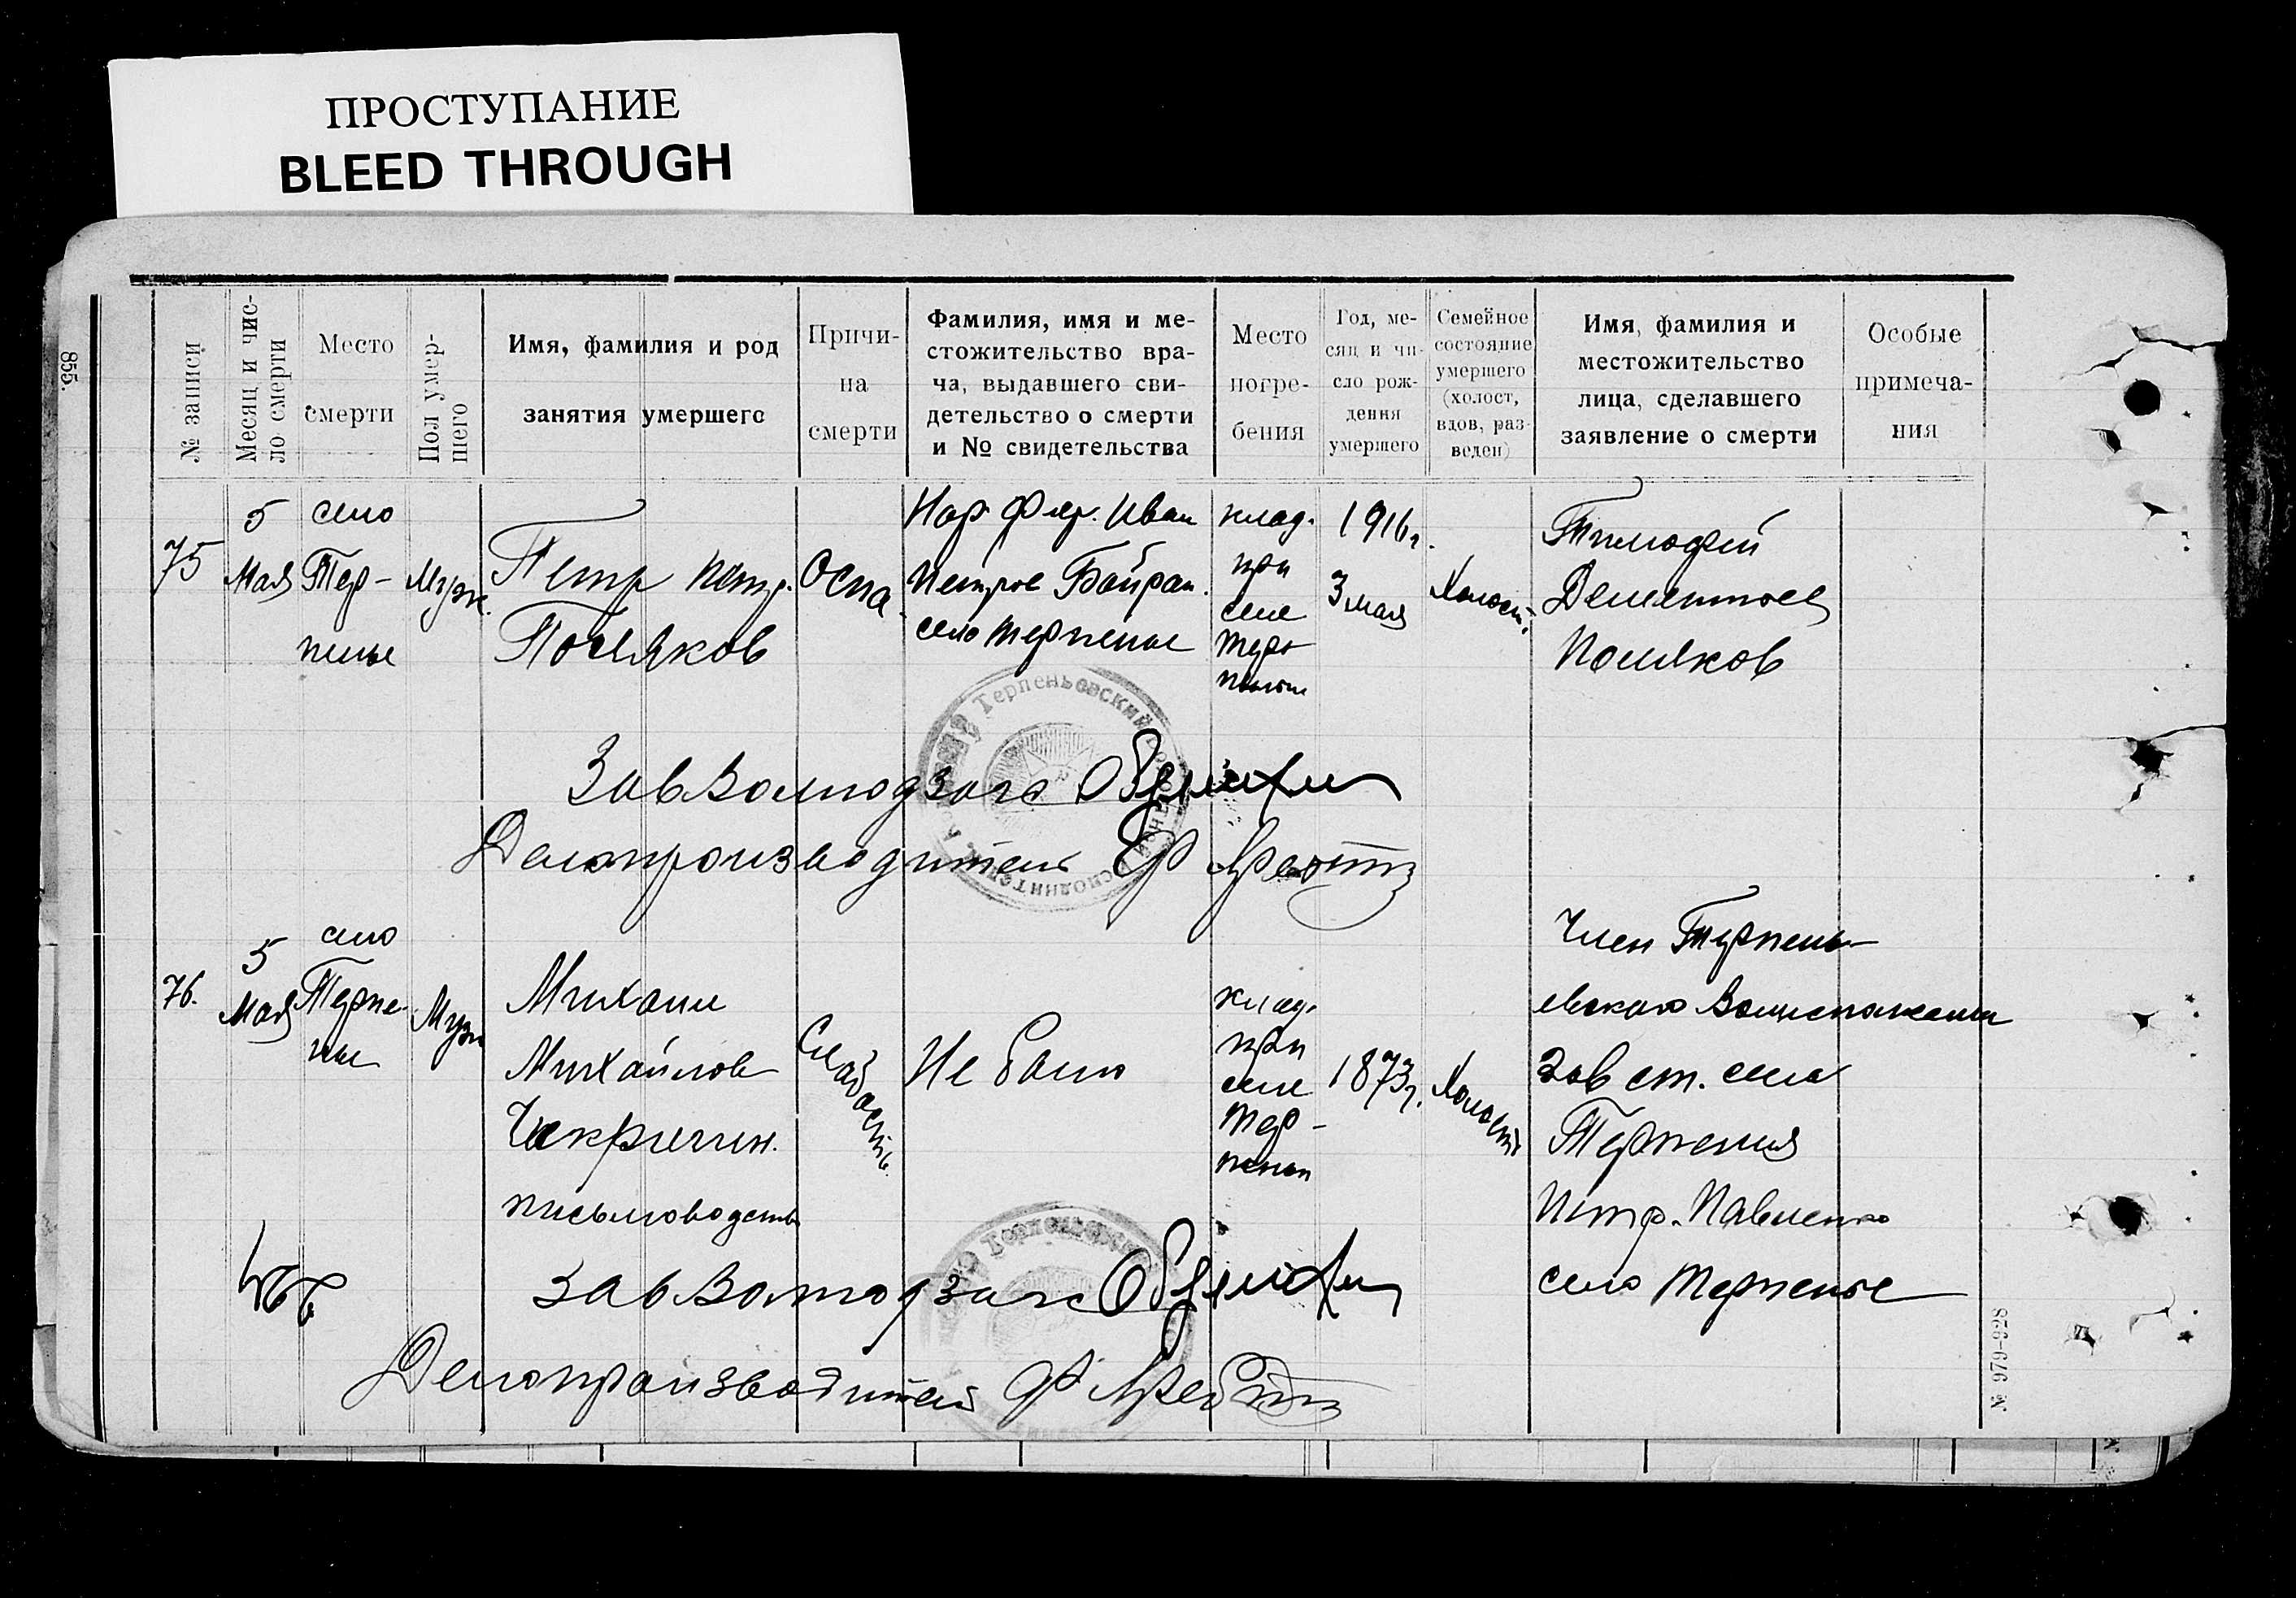 ПРОСТУПАНИЕ
BLEED THROUGH
855.
№ записи
Месяц и чис-
ло смерти
Место
смерти
Пол умер-
шего
Имя, фамилия и род
занятия умершего
Причи-
на
смерти
Фамилия, имя и ме-
стожительство вра-
ча, выдавшего сви-
детельство о смерти
и № свидетельства
Место
погре-
бения
Год, ме-
сяц и чи-
сло рож-
дения
умершего
Семейное
состояние
умершего
(холост,
вдов, раз-
веден)
Имя, фамилия и
местожительство
лица, сделавшего
заявление о смерти
Особые
примеча-
ния
75
5
Мая
село
Тер-
пенье
Муж.
Петр Петр.
Поляков
Оспа.
Иван
село Терпенье
клад.
при
селе
Терпе-
1916г.
3 мая
Холост.
Тимофей
Дементьев
Поляков
Терпеньевский
Зав Волподзагс
Делопроизводитель
76.
5
Мая
село
Терпе-
нье
Муж
Михаил
Михайлов
Чекригин.
письмоводств
Слабость.
Не было
клад.
при
селе
Тер-
1873г.
Холост
Член Терпень-
евского
Зав ст. села
Терпения
Петр. Павленко
село Терпенье
466
Зав Волподзагс
Делопроизводитель
№ 979-928